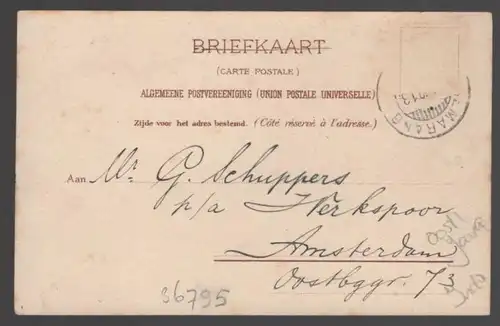 BRIEFKAART
(CARTE POSTALE)
ALGEMEENE POSTVEREENIGING (UNION POSTALE UNIVERSELLE)
Zijde voor het adres bestemd. (Côté réservé à l'adresse.)
Aan Mr. G. Schuppers
p/a Werkspoor
Amsterdam
Oostbggr. 73
Oost
Java
36795